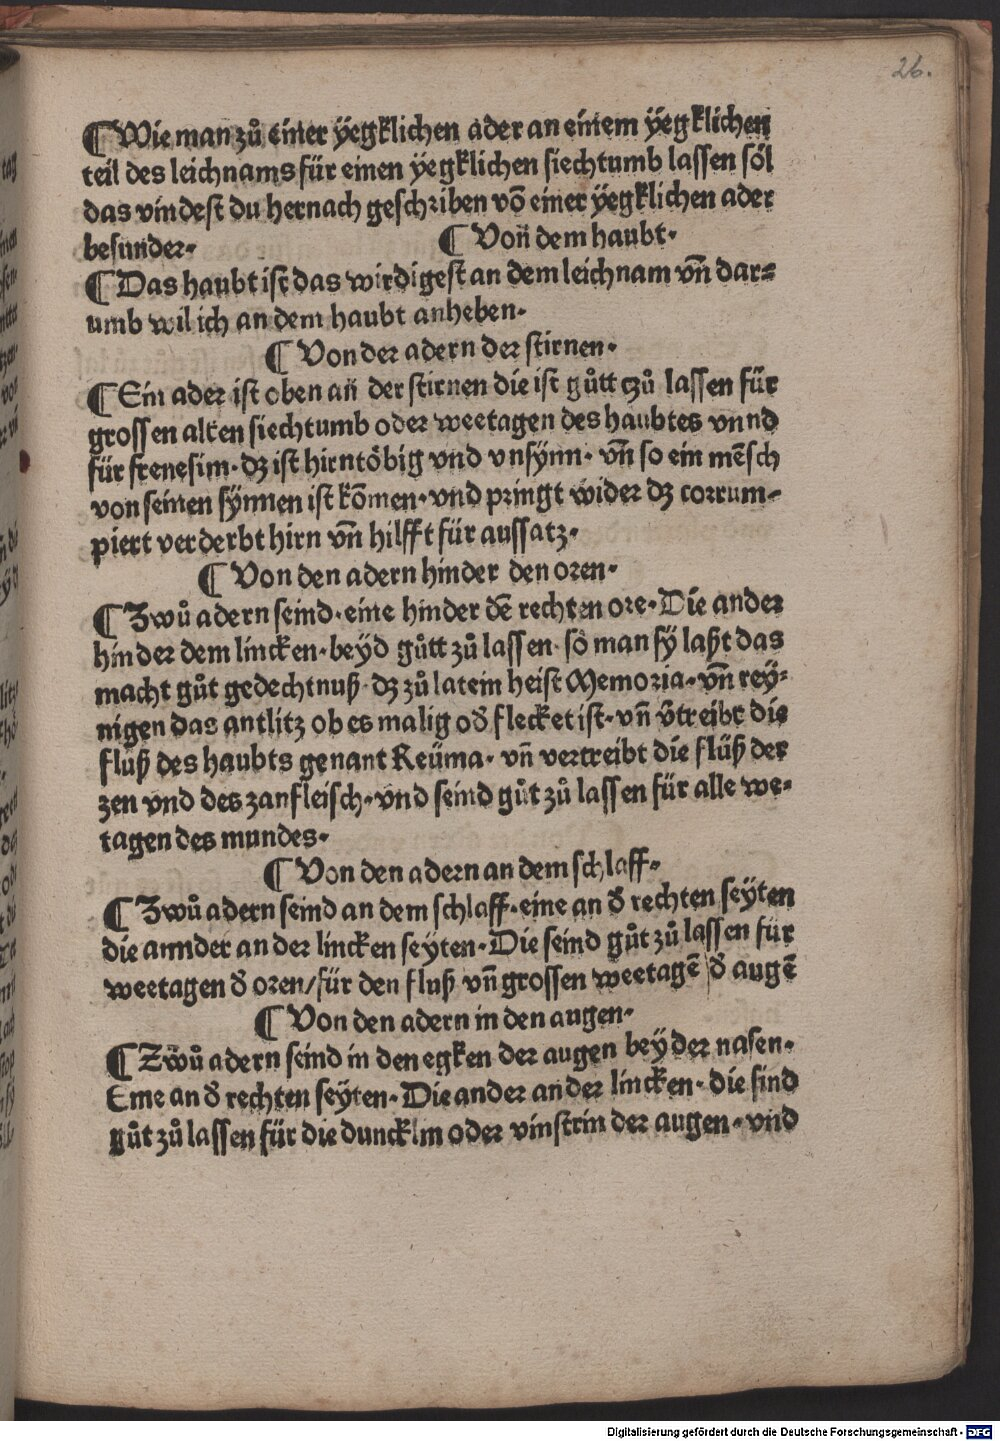 26.
¶ Wie man zů einer ÿegklichen ader an einem ÿegklichen
teil des leichnams für einen ÿegklichen siechtumb lassen söl
das vindest du hernach geschriben võ einer ÿegklichen ader
besunder. ¶ Von dem haubt.
¶ Das haubt ist das wirdigest an dem leichnam vñ dar⸗
umb wil ich an dem haubt anheben.
¶ Von der adern der stirnen.
¶ Ein ader ist oben an der stirnen die ist gůtt czů lassen für
grossen alten siechtumb oder weetagen des haubtes vnnd
für frenesim. dz ist hirntöbig vnd vnsÿnn. vñ so ein mẽsch
von seinen sÿnnen ist kõmen. vnd pringt wider dz corrum⸗
piert verderbt hirn vñ hilfft für aussatz.
¶ Von den adern hinder den oren.
¶ Zwů adern seind. eine hinder dẽ rechten ore. Die ander
hinder dem lincken. beyd gůtt zů lassen. so man sÿ laßt das
macht gůt gedechtnuß. dz zů latein heist Memoria. vñ reÿ⸗
nigen das antlitz ob es malig od̕ flecket ist. vñ v̕treibt die
flüß des haubts genant Reüma. vñ vertreibt die flüß der
zen vnd des zanfleisch. vnd seind gůt zů lassen für alle we⸗
tagen des mundes.
¶ Von den adern an dem schlaff.
¶ Zwů adern seind an dem schlaff. eine an d̕ rechten seÿten
die annder an der lincken seÿten. Die seind gůt zů lassen für
weetagen d̕ oren/ für den fluß vñ grossen weetagẽ d̕ augẽ
¶ Von den adern in den augen.
¶ Zwů adern seind in den egken der augen beÿ der nasen.
Eine an d̕ rechten seÿten. Die ander an der lincken. die sind
gůt zů lassen für die duncklin oder vinstrin der augen. vnd
Digitalisierung gefördert durch die Deutsche Forschungsgemeinschaft - DFG